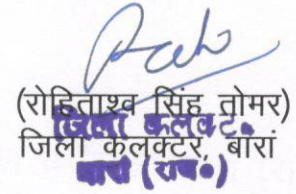 (रोहिताश्व सिंह तोमर)
जिला कलक्टर, बारां
जिला कलक्टर
बारां (राज०)